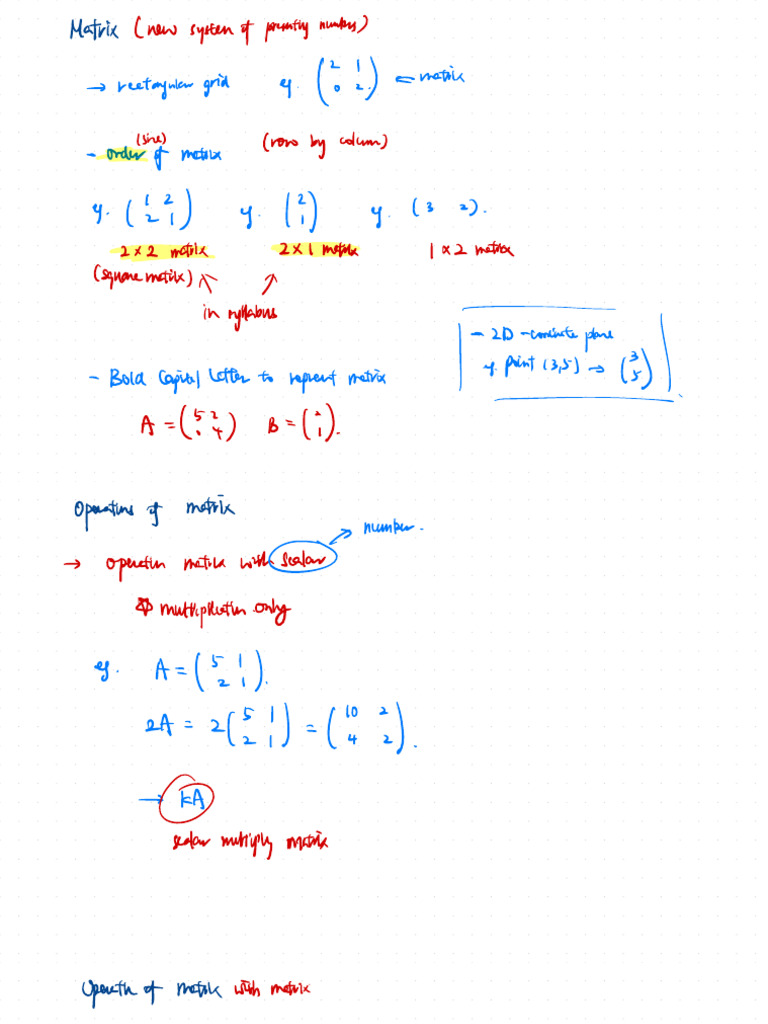 Matrix (new system of presenting numbers)
→ rectangular grid eg. (2 1
0 2) ← matrix
(size) (row by column)
- order of matrix
eg. (1 2
2 1) eg. (2
1) eg. (3 2).
2 × 2 matrix 2 × 1 matrix 1 × 2 matrix
(square matrix)
in syllabus
- 2D - coordinate plane
eg. point (3,5) → (3
5)
- Bold Capital Letter to represent matrix
A = (5 2
0 4) B = (2
1).
Operations of matrix
number.
→ operation matrix with scalar
☆ multiplication only
eg. A = (5 1
2 1).
2A = 2(5 1
2 1) = (10 2
4 2).
→ kA
scalar multiply matrix
Operation of matrix with matrix